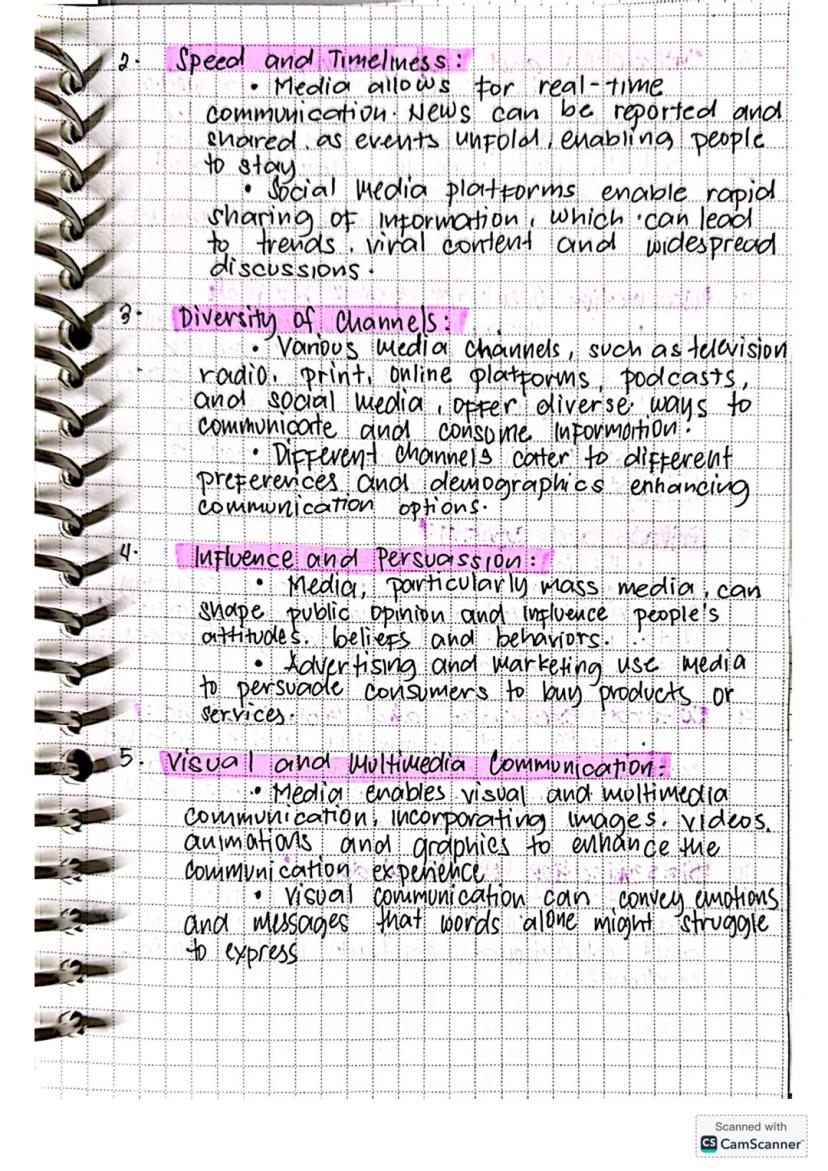 2. Speed and Timeliness:
• Media allows for real-time
communication. News can be reported and
shared as events unfold, enabling people
to stay
• Social Media platforms enable rapid
sharing of information, which can lead
to trends, viral content and widespread
discussions.
3. Diversity of Channels:
• Various media channels, such as television
radio, print, online platforms, podcasts,
and social media, offer diverse ways to
communicate and consume information.
• Different channels cater to different
preferences and demographics enhancing
communication options.
4. Influence and Persuassion:
• Media, particularly mass media, can
shape public opinion and influence people's
attitudes, beliefs and behaviors.
• Advertising and marketing use media
to persuade consumers to buy products or
services.
5. Visual and Multimedia Communication:
• Media enables visual and multimedia
communication, incorporating images, videos,
animations and graphics to enhance the
communication experience
• Visual communication can convey emotions
and messages that words alone might struggle
to express
Scanned with
CS CamScanner